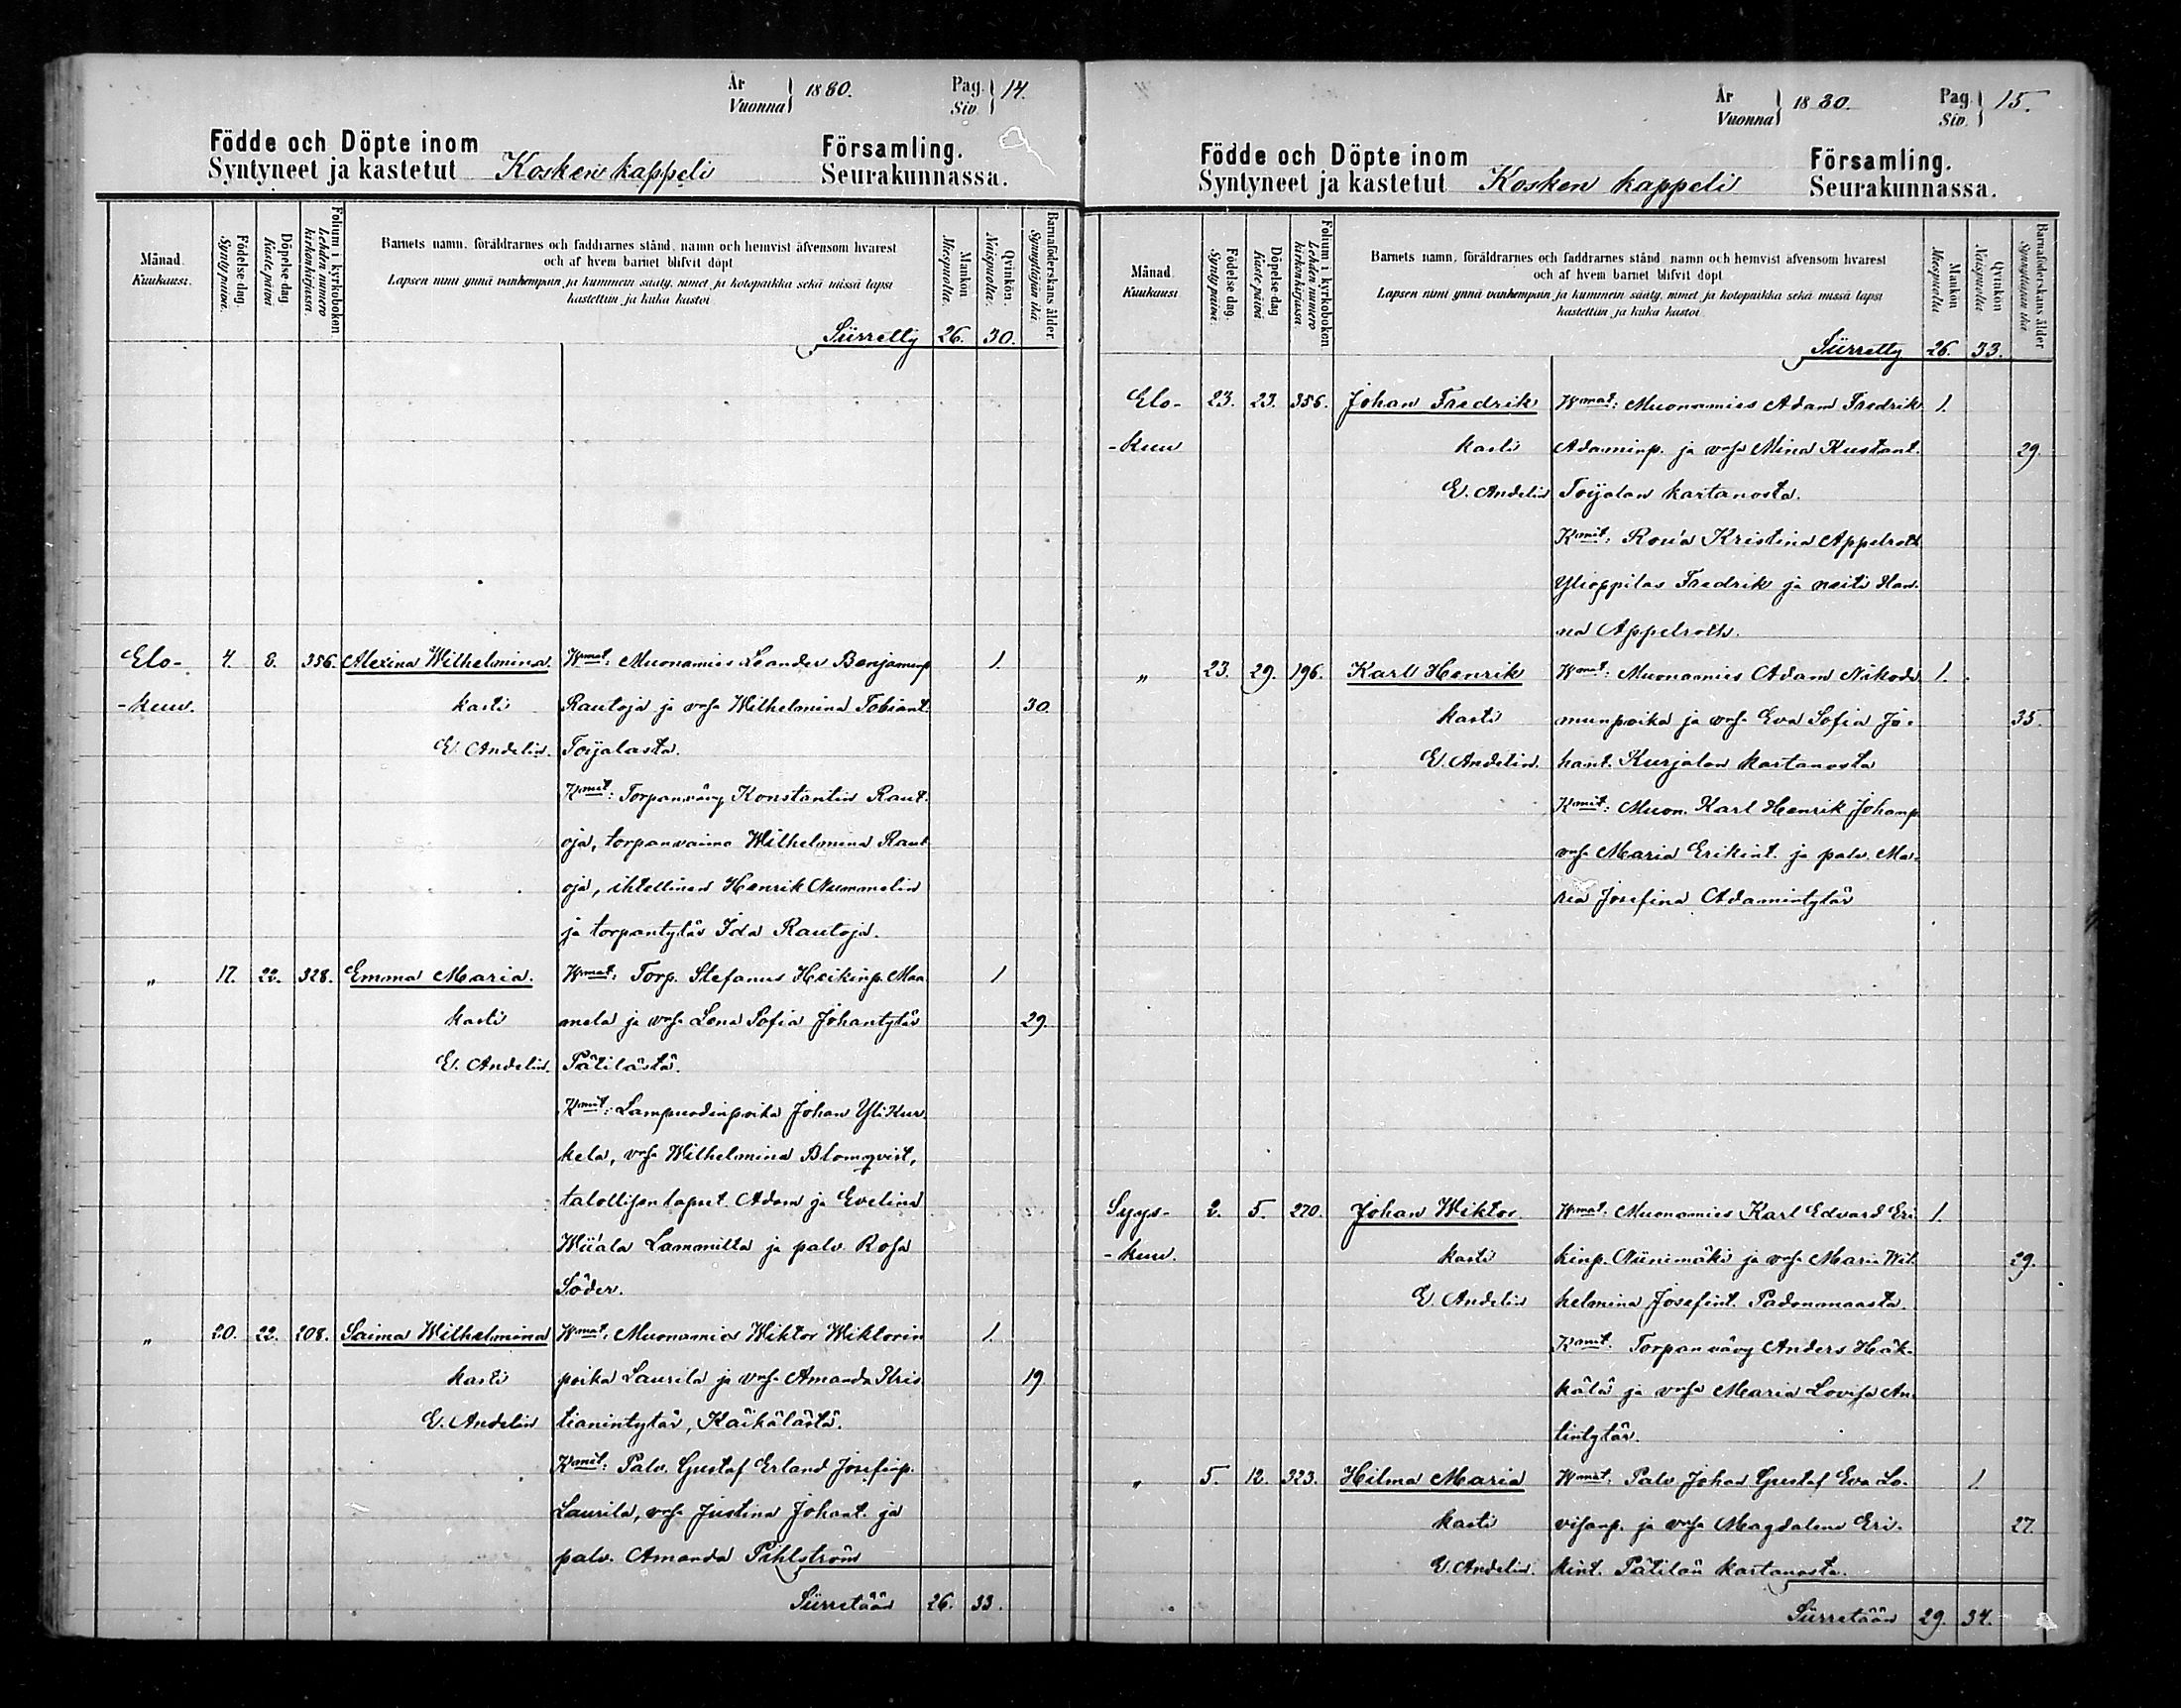 År
Vuonna
1880.
Pag.
Siv.
14.
Födde och Döpte inom
Syntyneet ja kastetut
Kosken kappeli
Församling.
Seurakunnassa.
Månad.
Kuukausi.
Födelse dag.
Synty päivä.
Döpelse dag
Kaste päivä
Folium i kyrkoboken.
Lehden numero kirkonkirjassa.
Barnets namn, föräldrarnes och faddrarnes stånd, namn och hemvist äfvensom hvarest
och af hvem barnet blifvit döpt
Lapsen nimi ynnä vanhempain ja kummein sääty, nimet ja kotopaikka sekä missä lapsi
kastettiin ja kuka kastoi
Mankön
Miespuolia.
Qvinkön.
Naispuolia.
Barnaföderskans ålder.
Synnyttäjän ikä.
Siirretty 26. 30.
Elo- 4. 8. 356. Alexina Wilhelmina. Wmat: Muonamies Leander Benjaminp. 1.
-kuu. kasti Rautoja ja vmsa Wilhelmina Tobiant. 30.
E. Andelin. Toijalasta.
Kmit: Torpanvävy Konstantin Raut-
oja, torpanvaimo Wilhelmina Raut-
oja, ihtellinen Henrik Nummelin
ja torpantytär Ida Rautoja.
" 17. 22. 328. Emma Maria. Wmat: Torp. Stefanus Heikinp. Maa- 1
kasti mela ja vmsa Lena Sofia Johantytär 29.
E. Andelin. Pätilästä.
Kmit: Lampuodinpoika Johan Ylikur-
kela, vmsa Wilhelmina Blomqvist,
talollisen lapset Adam ja Evelina
Wiiala Lammilta ja palv. Rosa
Söder.
" 20. 22. 208. Saima Wilhelmina Wmat: Muonamies Wiktor Wiktorin 1.
kasti poika Laurila ja vmsa Amanda Kris 19.
E. Andelin tianintytär, Käikälästä.
Kmit: Palv. Gustaf Erland Josefinp.
Laurila, vmsa Justina Johant. ja
palv. Amanda Pihlström
Siirretään 26. 33.
År
Vuonna
1880.
Pag.
Siv.
15.
Födde och Döpte inom
Syntyneet ja kastetut
Kosken kappeli
Församling.
Seurakunnassa.
Månad.
Kuukausi
Födelse dag.
Synty päivä.
Döpelse dag
Kaste päivä
Folium i kyrkoboken
Lehden numero kirkonkirjassa.
Barnets namn, föräldrarnes och faddrarnes stånd, namn och hemvist äfvensom hvarest
och af hvem barnet blifvit döpt
Lapsen nimi ynnä vanhempain ja kummein sääty, nimet ja kotopaikka sekä missä lapsi
kastettiin ja kuka kastoi
Mankön
Miespuolia
Qvinkön
Naispuolia
Barnaföderskans ålder
Synnyttäjän ikä
Siirretty 26. 33.
Elo- 23. 23. 356. Johan Fredrik Wmat: Muonamies Adam Fredrik 1.
-kuu kasti Adaminp. ja vmsa Mina Kustant. 29.
E. Andelin Toijalan kartanosta.
Kmit: Rou'a Kristina Appelroth
Ylioppilas Fredrik ja neiti Han-
na Appelroth.
" 23. 29. 196. Karl Henrik Wmat: Muonamies Adam Nikode 1.
kasti munpoika ja vmsa Eva Sofia Jo- 35.
E. Andelin. hant. Kurjalan kartanosta
Kmit: Muon. Karl Henrik Johanp.
vmsa Maria Erikint. ja palv. Ma-
ria Josefina Adamintytär
Syys- 2. 5. 270. Johan Wiktor Wmat: Muonamies Karl Edvard Eri 1.
-kuu. kasti kinp. Niinimäki ja vmsa Maria Wil- 29.
E. Andelin helmina Josefint. Padonmaasta.
Kmit: Torpanvävy Anders Häk-
kälä ja vmsa Maria Lovisa An-
tintytär.
" 5. 12. 323. Hilma Maria Wmat: Palv Johan Gustaf Eva Lo- 1.
kasti visanp. ja vmsa Magdalena Eri- 27.
E. Andelin. kint. Pätilän kartanosta.
Siirretään 29. 34.